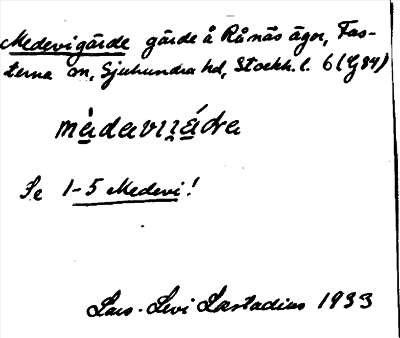 Medevigärde gärde å Rånäs ägor, Fas-
terna sn, Sjuhundra hd, Stockh. l. 6 (G84)
Se 1-5 Medevi!
Lars-Levi Læstadius 1933